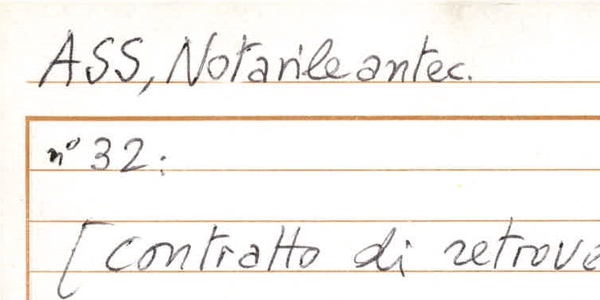 ASS, Notarile antec.
n° 32:
[contratto di